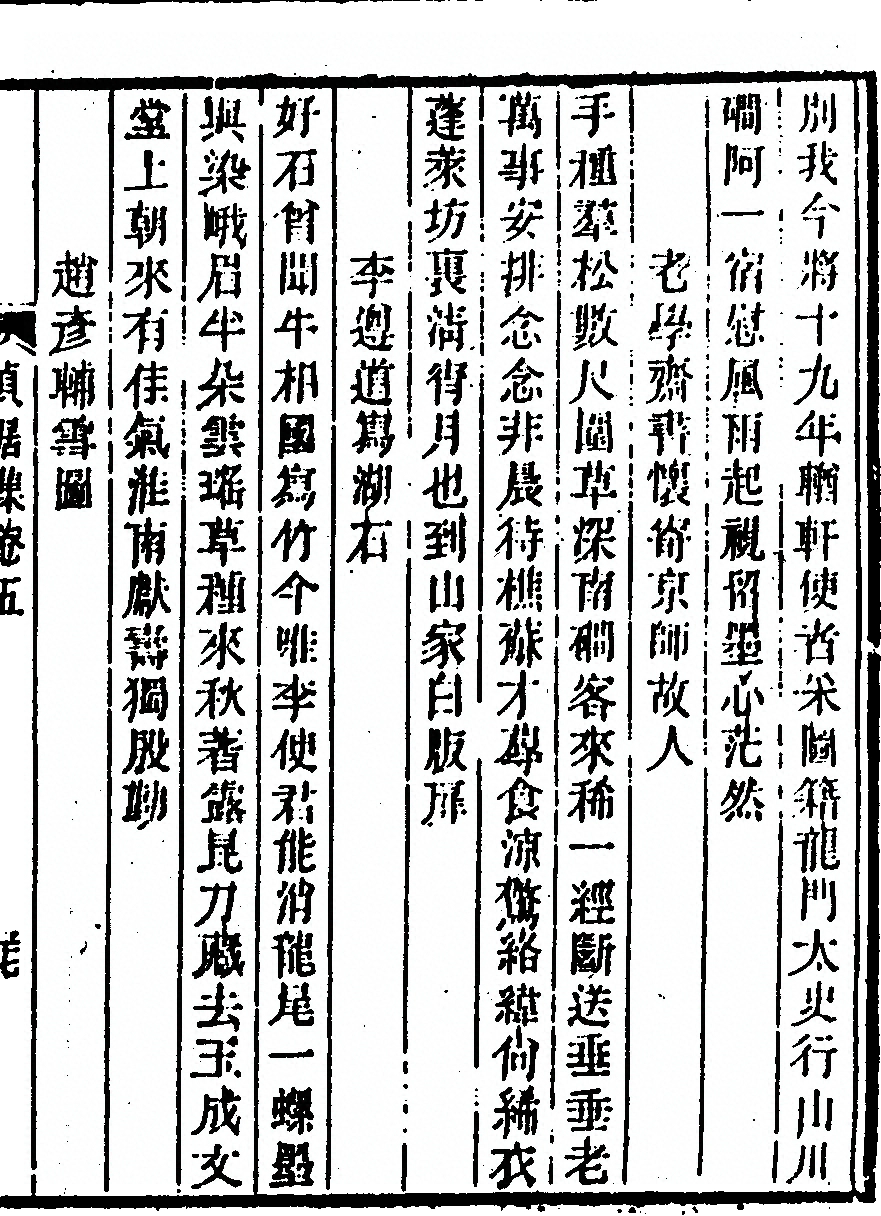 別我今將十九年輶軒使者采圖籍龍門太史行山川
磵阿一宿慰風雨起視留墨心茫然
老學齋書懷寄京師故人
手種羣松數尺圍草深南磵客來稀一經斷送垂垂老
萬事安排念念非晨待樵蘇才學食涼驚絡緯尙絺衣
蓬萊坊裏淸得月也到山家白版扉
李遵道寫湖石
好石曾聞牛相國寫竹今唯李使君能消龍尾一螺墨
與染峨眉半朵雲瑤草種來秋著露昆刀藏去玉成文
堂上朝來有佳氣淮南獻壽獨殷勤
趙彥輔雪圖
貞居集卷五